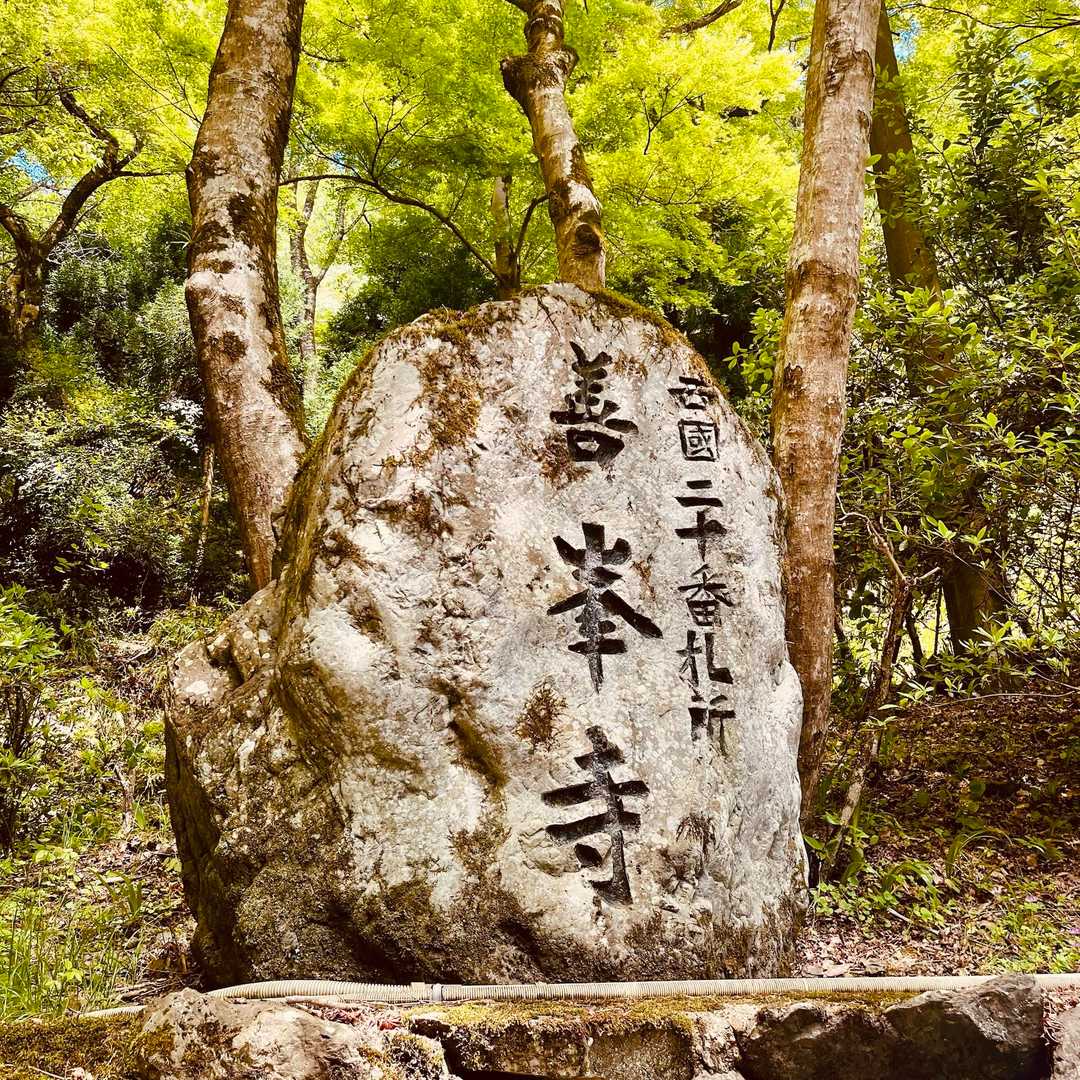 西國二十番札所
善峯寺